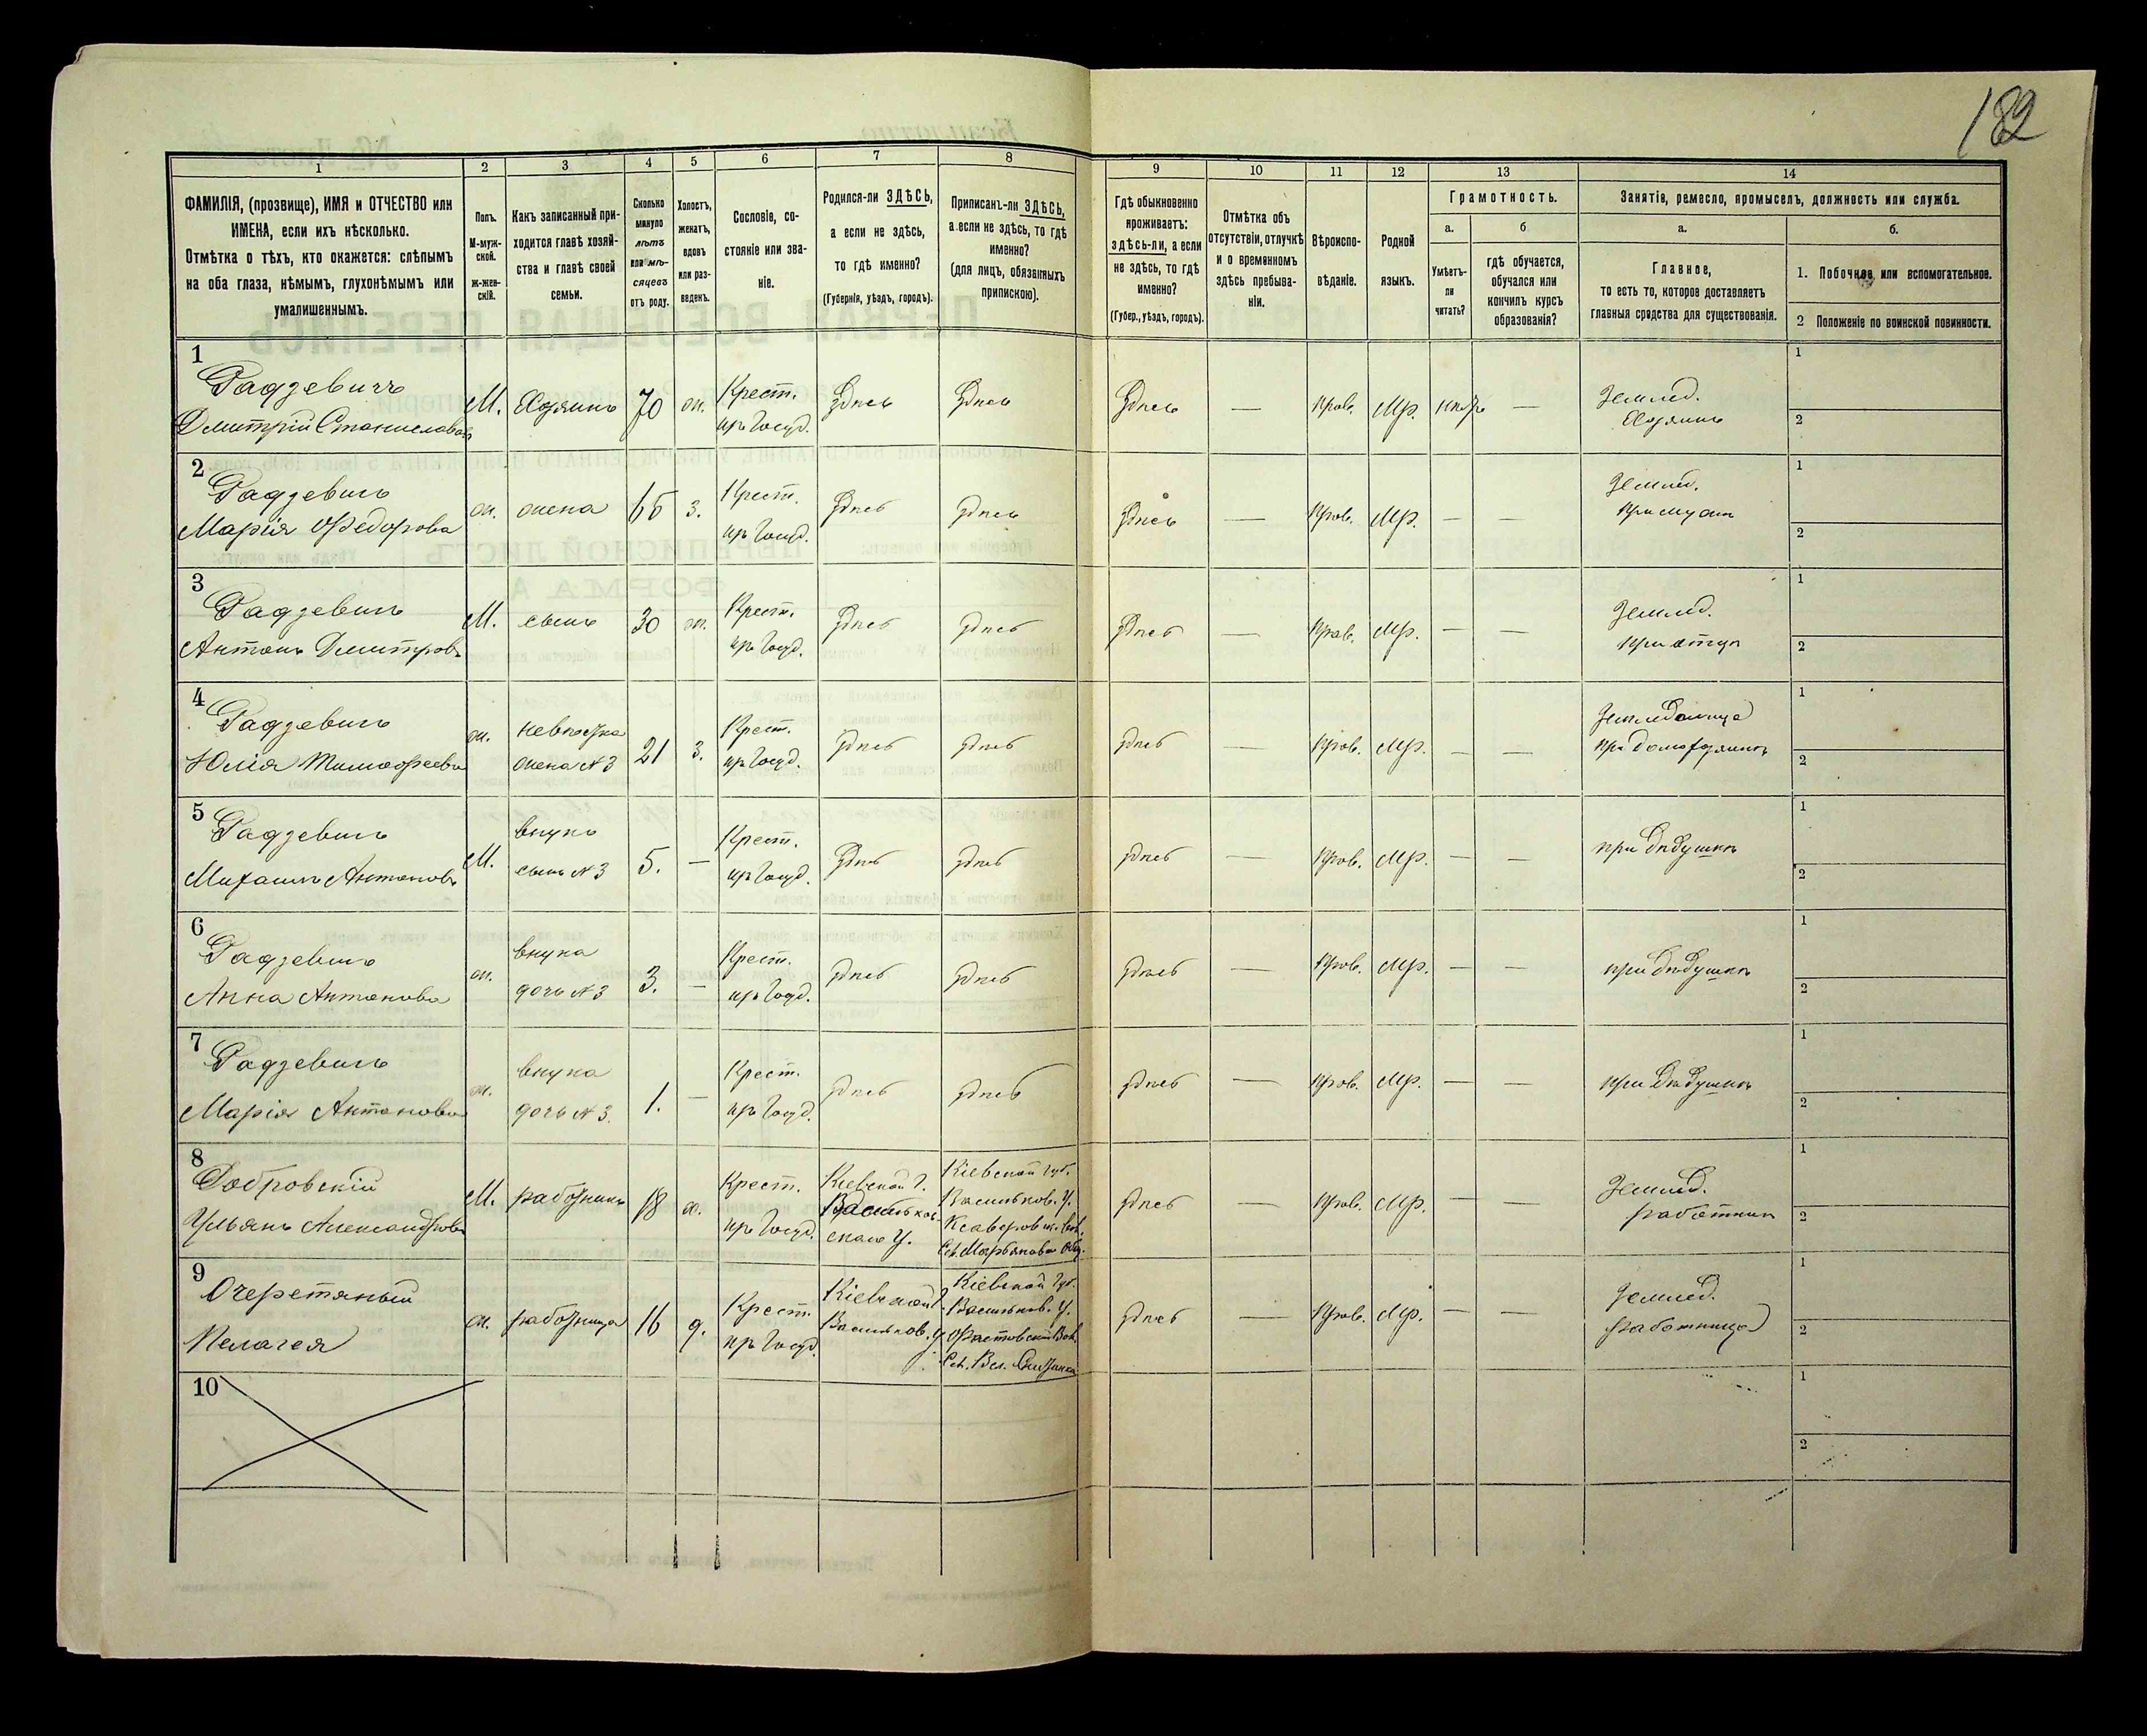 182
1 2 3 4 5 6 7 8 9 10 11 12 13 14
ФАМИЛІЯ, (прозвище), ИМЯ и ОТЧЕСТВО или
ИМЕНА, если ихъ нѣсколько.
Отмѣтка о тѣхъ, кто окажется: слѣпымъ
на оба глаза, нѣмымъ, глухонѣмымъ или
умалишеннымъ.
Полъ.
М-муж-
ской.
ж-жен-
скій.
Какъ записанный при-
ходится главѣ хозяй-
ства и главѣ своей
семьи.
Сколько
минуло
лѣтъ
или мѣ-
сяцевъ
отъ роду.
Холостъ,
женатъ,
вдовъ
или раз-
веденъ.
Сословіе, со-
стояніе или зва-
ніе.
Родился-ли ЗДѢСЬ,
а если не здѣсь,
то гдѣ именно?
(Губернія, уѣздъ, городъ).
Приписанъ-ли ЗДѢСЬ,
а если не здѣсь, то гдѣ
именно?
(для лицъ, обязанныхъ
припискою).
Гдѣ обыкновенно
проживаетъ:
здѣсь-ли, а если
не здѣсь, то гдѣ
именно?
(Губер., уѣздъ, городъ).
Отмѣтка объ
отсутствіи, отлучкѣ
и о временномъ
здѣсь пребыва-
ніи.
Вѣроиспо-
вѣданіе.
Родной
языкъ.
Грамотность.
а.
Умѣетъ-
ли
читать?
б
гдѣ обучается,
обучался или
кончилъ курсъ
образованія?
Занятія, ремесло, промыселъ, должность или служба.
а.
Главное,
то есть то, которое доставляетъ
главныя средства для существованія.
б.
1. Побочное или вспомогательное.
2 Положеніе по воинской повинности.
1 Радзевичъ
Дмитрій Станиславовъ М. Хозяинъ 70 ж. Крест. изъ Госуд. Здѣсь Здѣсь Здѣсь — Прав. Мр. — Землед. Хозяинъ 1 2
2 Радзевичъ
Марія Федорова ж. жена 65 з. Крест. изъ Госуд. Здѣсь Здѣсь Здѣсь — Прав. Мр. — — Землед. При мужѣ 1 2
3 Радзевичъ
Антонъ Дмитровъ М. сынъ 30 ж. Крест. изъ Госуд. Здѣсь Здѣсь Здѣсь — Прав. Мр. — — Землед. при отцѣ 1 2
4 Радзевичъ
Юлія Тимофеева ж. невѣстка жена №3 21 з. Крест. изъ Госуд. Здѣсь Здѣсь Здѣсь — Прав. Мр. — — при домохозяинѣ 1 2
5 Радзевичъ
Михаилъ Антоновъ М. внукъ сынъ №3 5. — Крест. изъ Госуд. Здѣсь Здѣсь Здѣсь — Прав. Мр. — — при дѣдушкѣ 1 2
6 Радзевичъ
Анна Антонова ж. внука дочь №3 3. — Крест. изъ Госуд. Здѣсь Здѣсь Здѣсь — Прав. Мр. — — при дѣдушкѣ 1 2
7 Радзевичъ
Марія Антонова ж. внука дочь №3. 1. — Крест. изъ Госуд. Здѣсь Здѣсь Здѣсь — Прав. Мр. — — при дѣдушкѣ 1 2
8 Добровскій
Ульянъ Александровъ М. работникъ 18 х. Крест. изъ Госуд. Кіевской г. Васильков- скаго У. Кіевской губ. Васильков. У. Ксаверовск. Вол. Здѣсь — Прав. Мр. — — Землед. работник 1 2
9 Очеретяный
Пелагея ж. работница 16 д. Крест. изъ Госуд. Кіевской Г. Васильков. У. Кіевской Губ. Васильков. У. Фастовской Вол. Здѣсь — Прав. Мр. — — Землед. работница 1 2
10 1 2